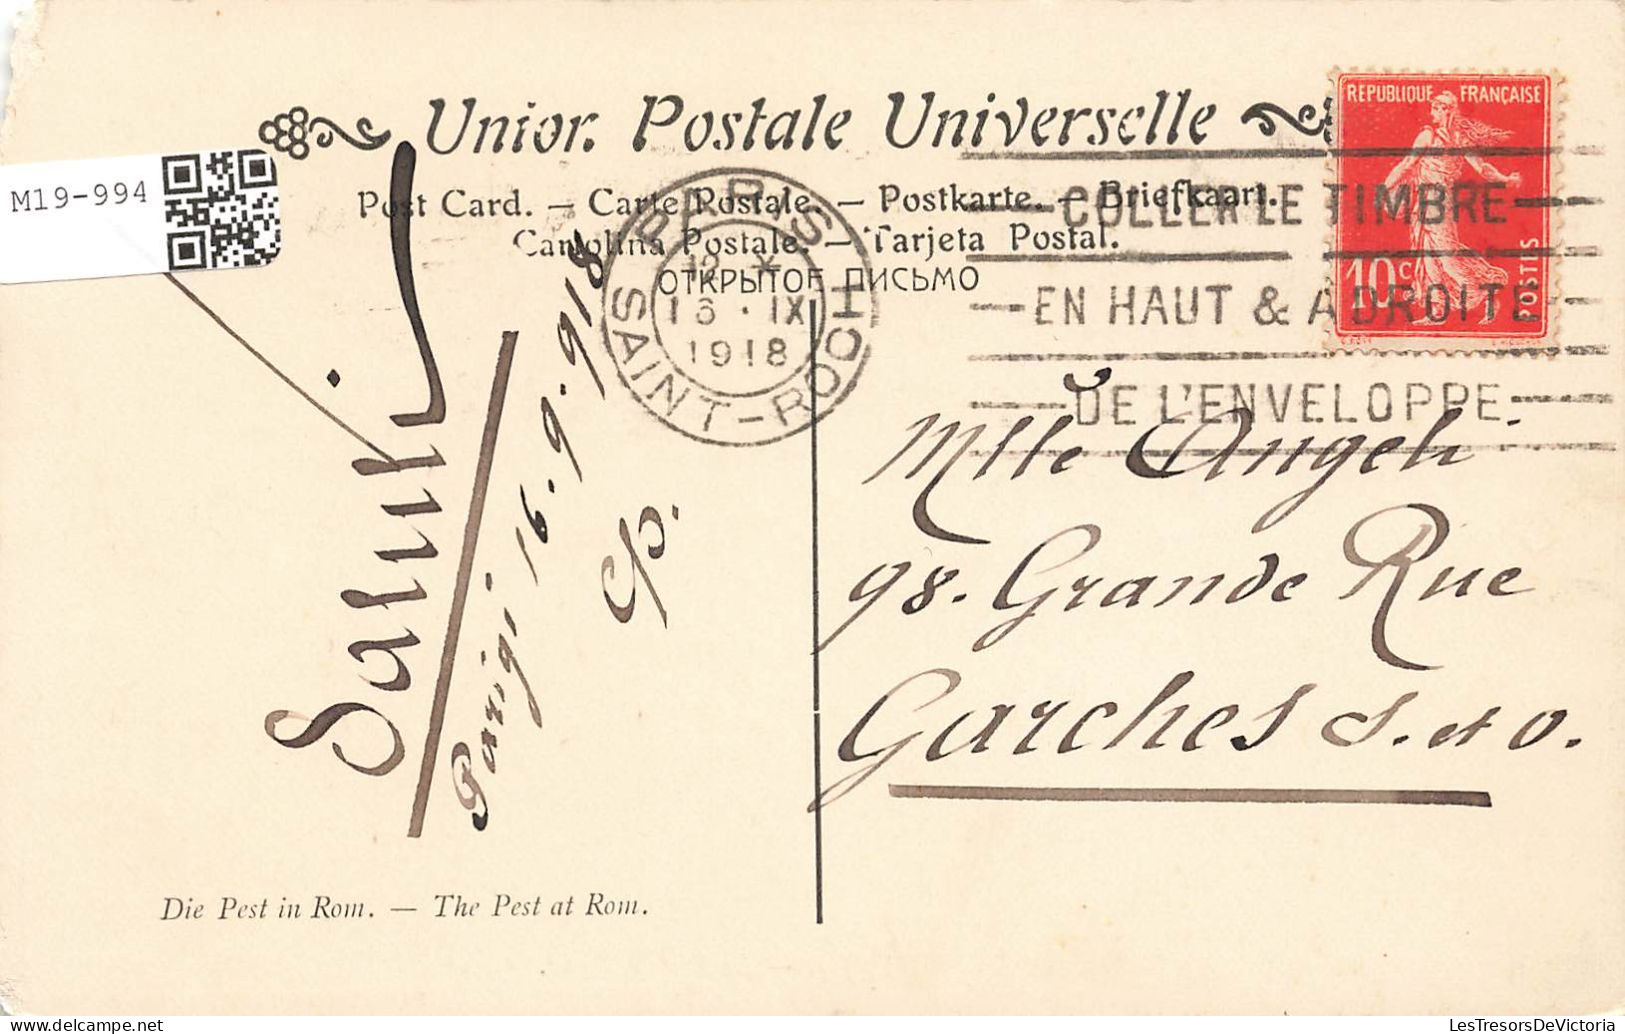 Union Postale Universelle
Post Card. — Carte Postale. — Postkarte. — Briefkaart.
Cartolina Postale. — Tarjeta Postal.
ОТКРЫТОЕ ПИСЬМО
M19-994
REPUBLIQUE FRANÇAISE
10c
POSTES
PARIS
16 · IX
1918
SAINT-ROCH
COLLER LE TIMBRE
EN HAUT & A DROITE
DE L'ENVELOPPE
Saluti
Parigi 16.9.918
Mlle Angeli
98. Grande Rue
Garches S. et O.
Die Pest in Rom. — The Pest at Rom.
LesTresorsDeVictoria